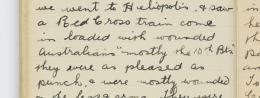 we went to Heliopolis, & saw
a Red Cross train come
in loaded with wounded
Australians "mostly the 10th Btn"
they were as pleased as
punch, & were mostly wounded